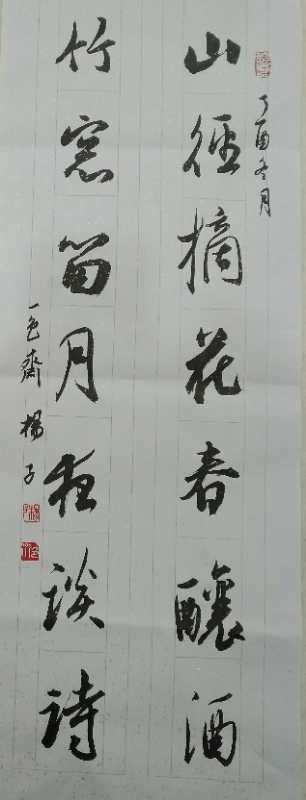 丁酉冬月
山徑摘花春釀酒
竹窓留月夜談詩
一色齋楊子